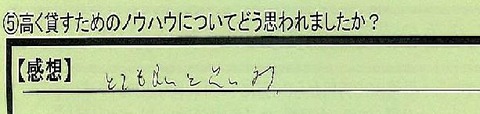 ⑤高く貸すためのノウハウについてどう思われましたか？
【感想】 とても良いと思います